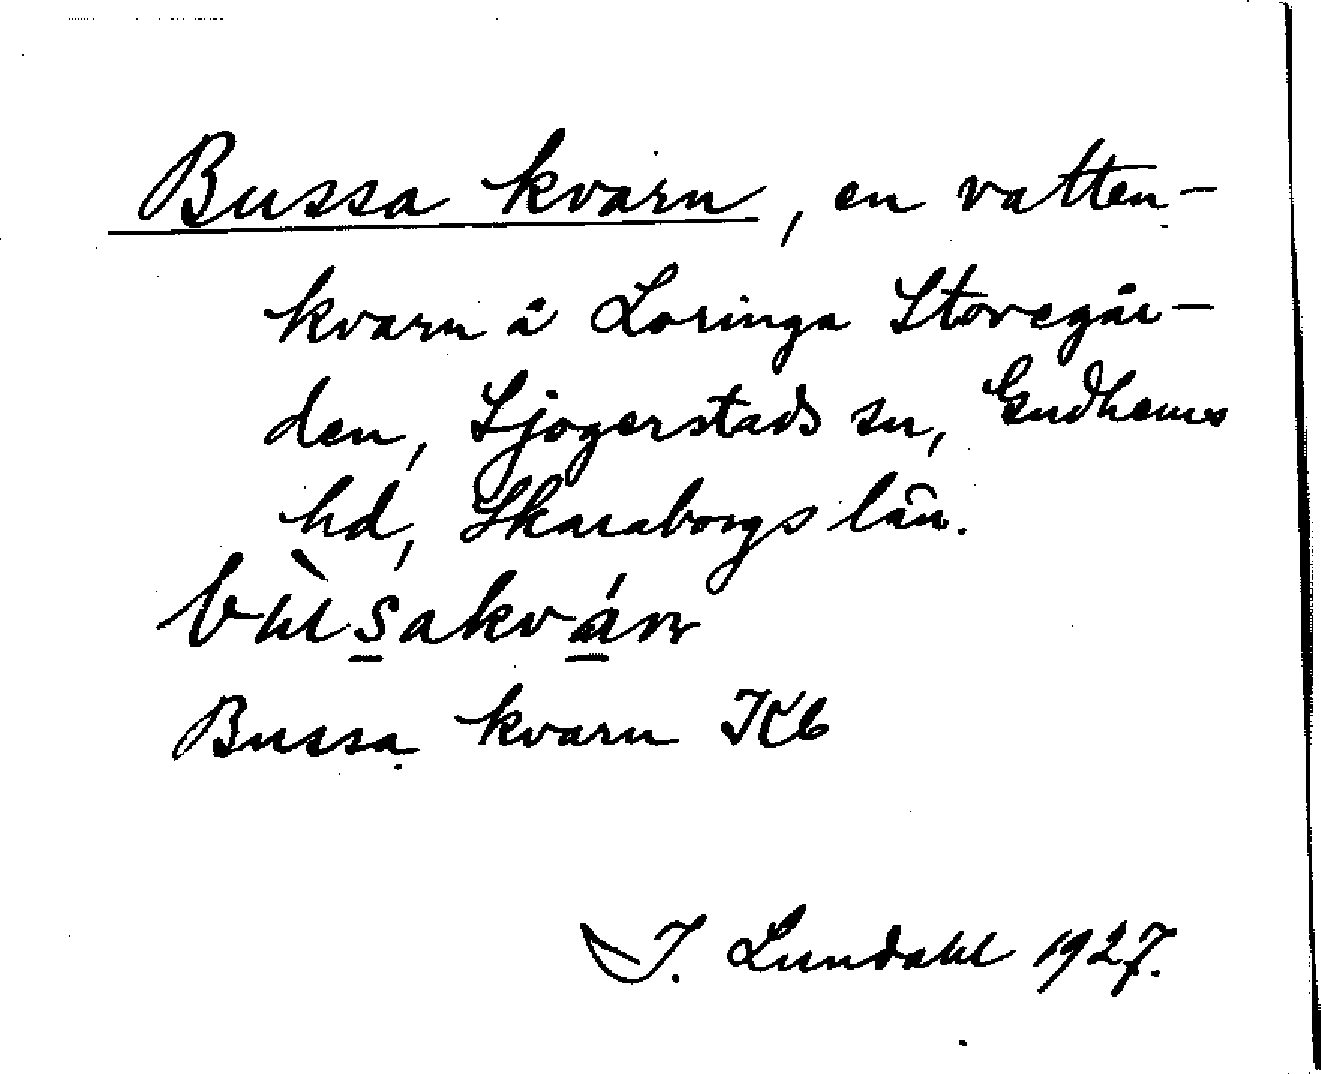 Bussa kvarn, en vatten-
kvarn å Loringa Storegår-
den, Sjogerstads sn, Gudhems
hd, Skaraborgs län.
Bussa kvarn JKb
I. Lundahl 1927.